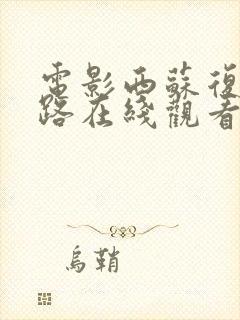 電影西蘇復
路在綫觀看
烏鞘